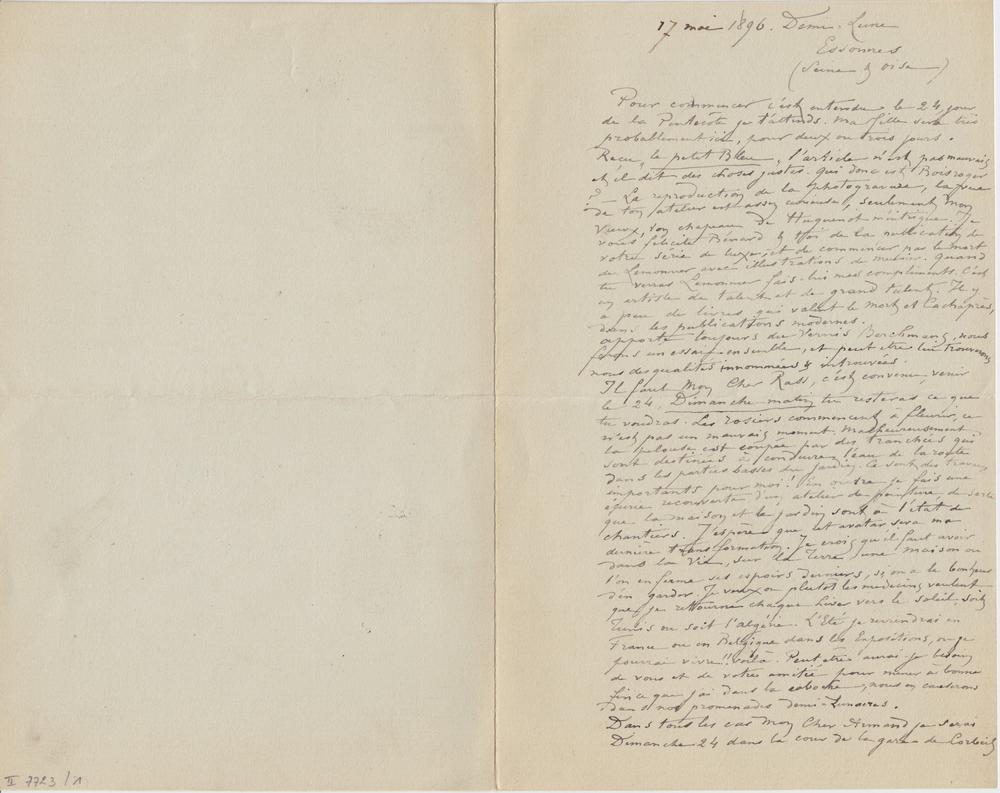 17 mai 1896. Demi-Lune
Essonnes
(Seine & Oise)
Pour commencer c'est entendu le 24, jour
de la Pentecôte je t'attends. Ma fille sera très
probablement ici, pour deux ou trois jours.
Recu, le petit Bleu, l'article n'est pas mauvais
et il dit des choses justes. qui donc est Boisroger
? — La reproduction de la photogravure, la vue
de ton atelier est assez curieuse, seulement mon
vieux, ton chapeau de Huguenot m'intrigue. Je
vous félicite Bénard & toi de la publication de
votre série de luxe, et de commencer par le mort
de Lemonnier avec illustrations de meunier. quand
tu verras Lemonnier fais-lui mes compliments. C'est
un artiste de talent et de grand talent. Il y
a peu de livres qui valent le Mort et Cachaprès,
dans les publications modernes.
apporte toujours du Vernis Berchmans, nous
ferons un essai ensemble, et peut être lui trouverons
nous des qualités innommées & introuvées.
Il faut Mon Cher Rass, c'est convenu, venir
le 24, Dimanche matin, tu resteras ce que
tu voudras. Les rosiers commencent à fleurir, ce
n'est pas un mauvais moment. Malheureusement
la pelouse est coupée par des tranchées qui
sont destinées à conduire l'eau de la route
dans les parties basses du jardin. Ce sont des travaux
importants pour moi! En outre je fais une
épurie recouverte d'un atelier de peinture de sorte
que la maison et le jardin sont à l'état de
chantiers. J'espère que cet avatar sera ma
dernière transformation. Je crois qu'il faut avoir
dans la Vie, sur la Terre une maison ou
l'on enferme ses espoirs derniers, si on a le bonheur
d'en garder. Je veux ou plutôt les médecins veulent
que je retourne chaque hiver vers le soleil, soit
Tunis ou soit l'algérie. L'Eté je reviendrai en
France ou en Belgique dans les Expositions, ou je
pourrai vivre!! voilà. Peut être aurai je besoin
de vous et de votre amitié pour mener à bonne
fin ce que j'ai dans la caboche, nous en causerons
dans nos promenades demi-Lunaires.
Dans tous les cas Mon Cher Armand je serai
Dimanche 24 dans la cour de la gare de Corbeil
II 7723/1